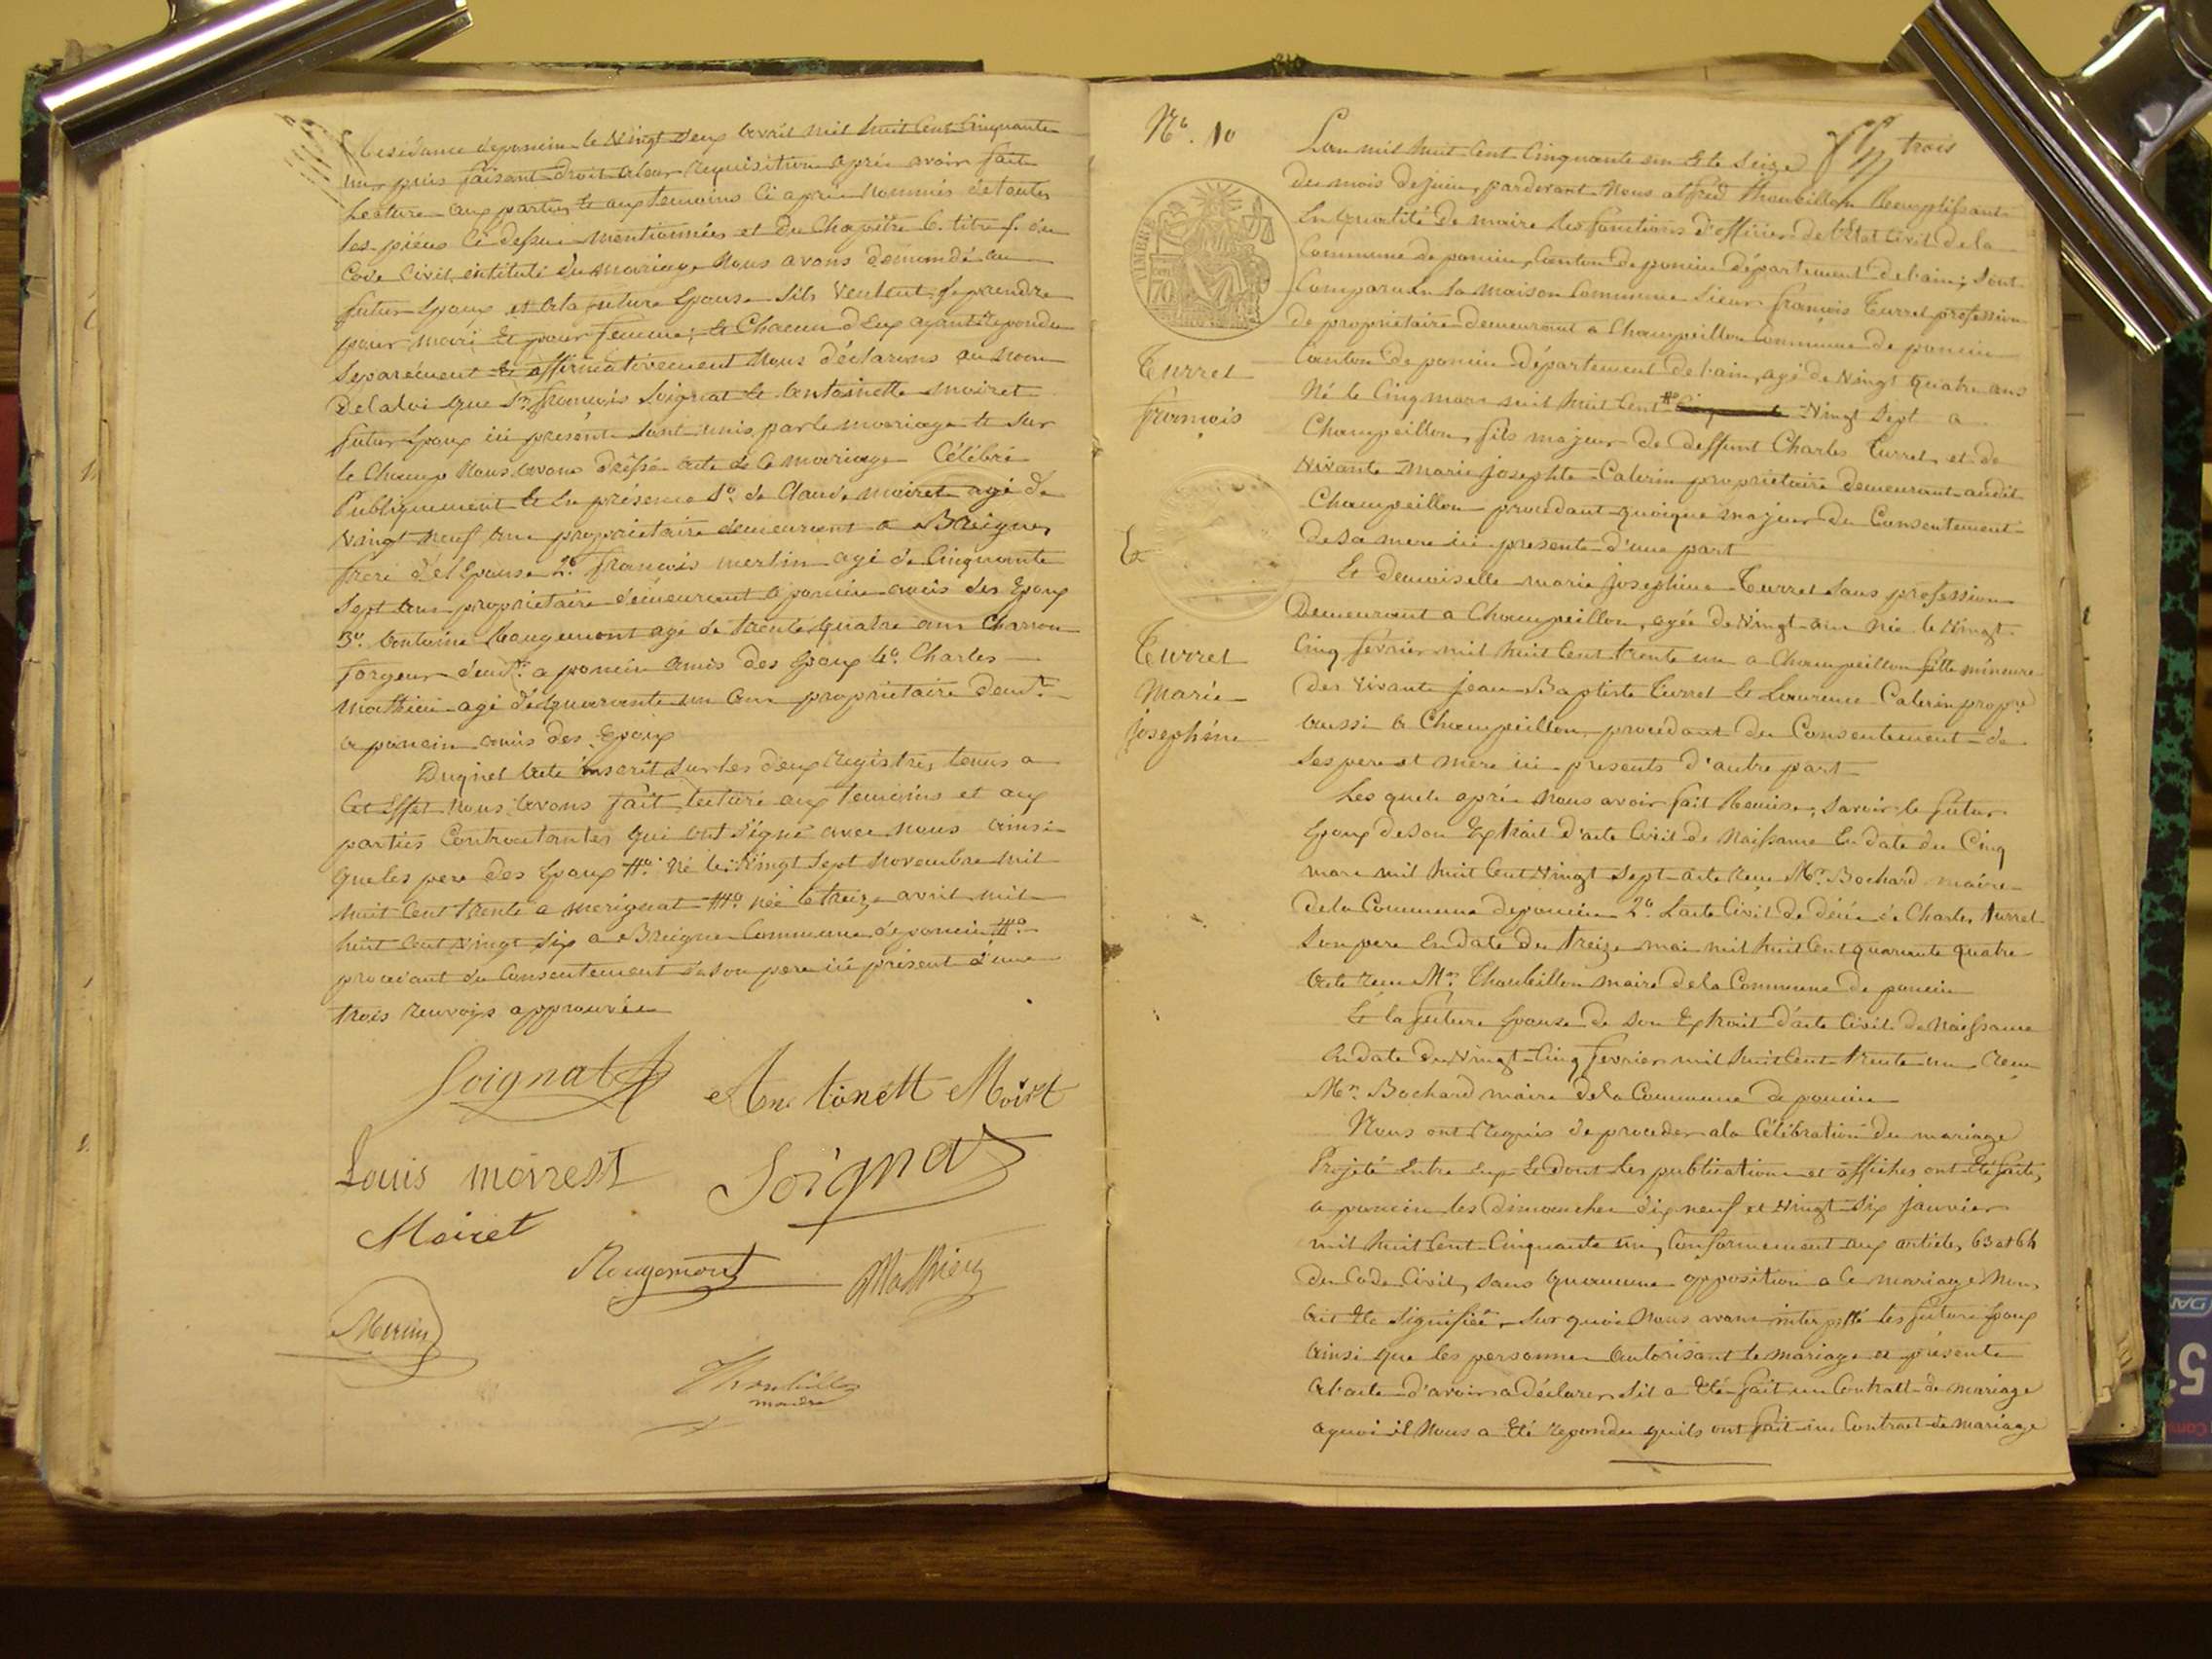 Residance deponcin le Vingt deux avril mil huit Cent Cinquante
un, puis faisant droit aleur requisition après avoir fait
Lecture aux parties et aux temoins Ci après nommés détoutes
les pièces Ci dessus mentionnées et du Chapitre 6. titre 5. du
Code Civil intitulé du mariage Nous avons demandé au
futur Epoux et ala future Epouse Sils Veulent se prendre
pour mari et pour femme, et Chacun d'Eux ayant repondu
Separément et affirmativement Nous déclarons au Nom
Delaloi que Sr. françois Soignat et antoinette moiret
futur Epoux ici présents sont unis par le mariage et sur
le Champ Nous avons dressé acte de Ce mariage Célébré
Publiquement et En présence 1º. de Claude moiret agé de
Vingt neuf ans propriétaire demeurant a Breignes
frere del'Epouse 2º. françois merlin agé de Cinquante
Sept ans propriétaire démeurant a poncin amis des Epoux
3º. antoine Rougemont agé de trente quatre ans Charron
forgeur demt. a poncin amis des Epoux 4º. Charles
mathieu agé de quarante un ans propriétaire demt.
a poncin amis des Epoux
Duquel acte inscrit sur les deux registres tenus a
Cet Effet Nous avons fait lecture aux temoins et aux
parties Contractantes qui ont signé avec nous ainsi
que les pere des Epoux #º. Né le Vingt Sept Novembre mil
huit Cent trente a merignat ##º née le treize avril mil
huit Cent Vingt Six a Breignes Commune déponcin ##º
procedant du Consentement de son pere ici présent d'une
trois renvois approuvés
Soignat
Antoinett Moirt
Louis moirest
Soignat
Moiret
Rougemont
Mathieu
Merlin
Thoubillon
maire
Nº. 10
trois
TIMBRE
70
Turrel
françois
Et
Turrel
Marie
Joséphine
L'an mil huit Cent Cinquante un Et le Seize
du mois de juin, pardevant Nous alfred Thoubillon Remplissant
En qualité de maire les fonctions d'officier de l'Etat Civil de la
Commune de poncin, Canton de poncin département de l'ain; Sont
Comparu En la maison Commune Sieur françois Turrel profession
de propriétaire demeurant a Champeillon Commune de poncin
Canton de poncin département de l'ain, agé de Vingt quatre ans
Né le Cinq mars mil huit Cent Vingt Sept a
Champeillon, fils majeur de deffunt Charles Turrel, et de
Vivante Marie josephte Caterin propriétaire demeurant audit
Champeillon procédant quoique majeur du Consentement
de sa mere ici presente d'une part
Et demoiselle marie josephine Turrel Sans profession
Demeurant a Champeillon, agée de Vingt ans née le Vingt
Cinq février mil huit Cent trente un a Champeillon fille mineure
des Vivants jean Baptiste Turrel et Laurence Caterin propre
aussi a Champeillon, procédant du Consentement de
Ses pere et mere ici presents d'autre part
Les quels après Nous avoir fait Remise, Savoir le futur
Epoux de son Extrait d'acte Civil de Naissance En date du Cinq
mars mil huit Cent Vingt Sept acte reçu Mr. Bochard maire
de la Commune deponcin 2º. L'acte Civil de décès de Charles turrel
Son pere En date du treize mai mil huit Cent quarante quatre
acte reçu Mr. Thoubillon maire dela Commune de poncin
Et la future Epouse de son Extrait d'acte Civil de Naissance
En date du Vingt Cinq fevrier mil huit Cent trente un reçu
Mr. Bochard maire dela Commune de poncin
Nous ont requis de proceder ala Célébration du mariage
Projeté Entre Eux Et dont les publications et affiches ont Eté faites
a poncin les Dimanches dix neuf et Vingt Six janvier
mil huit Cent Cinquante un, Conformement aux articles 63 et 64
du Code Civil, sans quaucune opposition a Ce mariage Nous
ait Eté Signifiée, Sur quoi Nous avons interpellé les futurs Epoux
ainsi que les personnes autorisant le mariage et présente
al'acte d'avoir a déclarer Sil a Eté fait un Contrat de mariage
aquoi il Nous a Eté repondu quils ont fait un Contrat de mariage